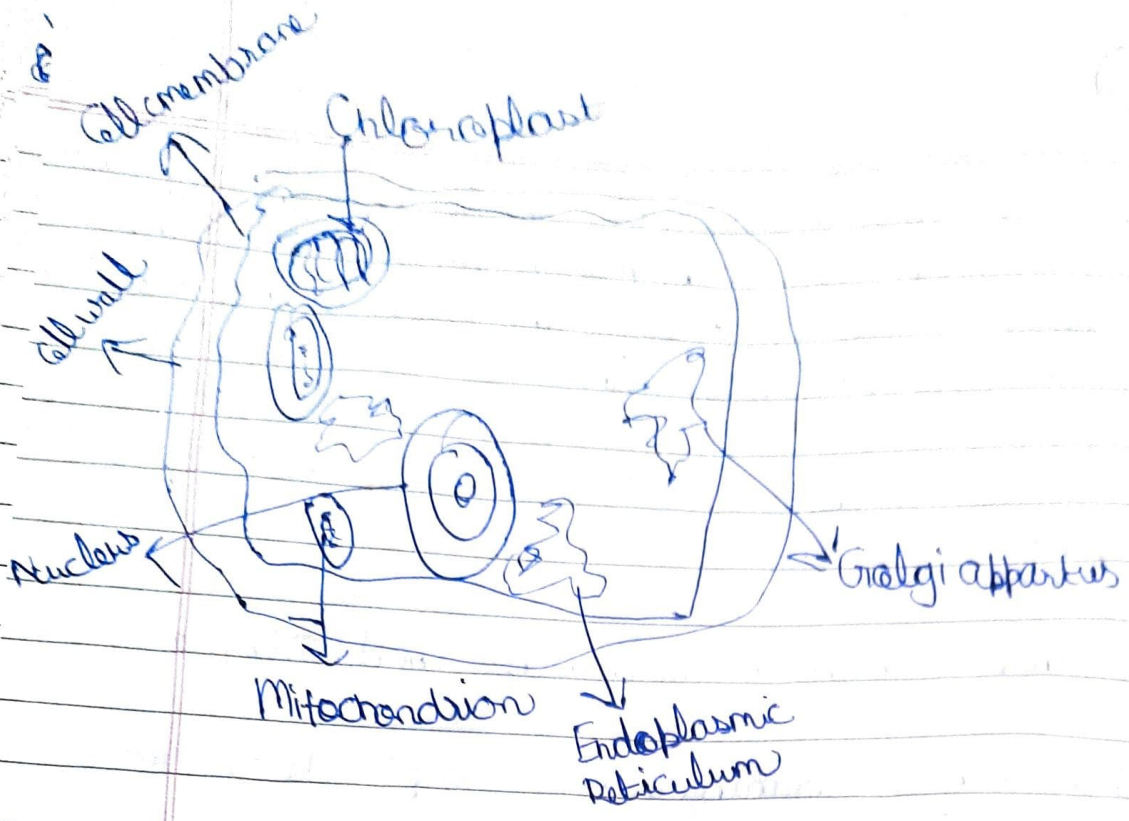 Cell membrane
Chloroplast
Cell wall
Nucleus
Golgi appartus
Mitochondrion
Endoplasmic
Reticulum